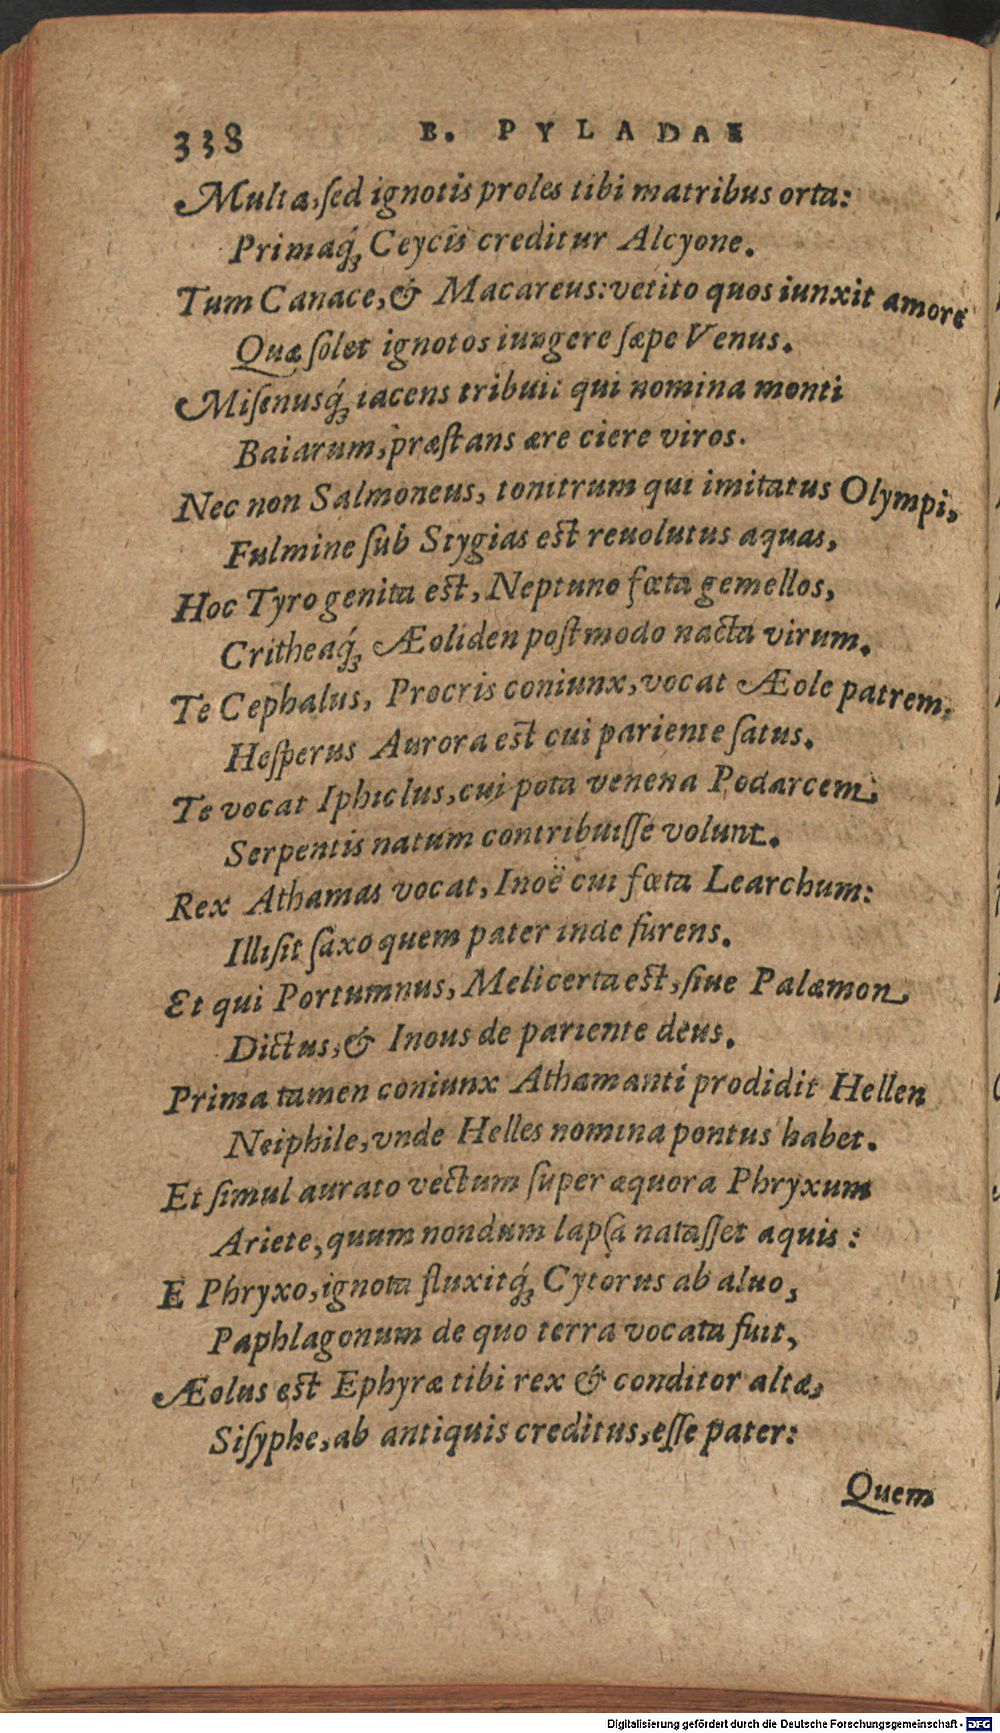 338 B. PYLADAE
Multa, ſed ignotis proles tibi matribus orta:
Primaq́; Ceycis creditur Alcyone.
Tum Canace, & Macareus: vetito quos iunxit amore
Quæ ſolet ignotos iungere ſæpe Venus.
Miſenusq́; iacens tribuit qui nomina monti
Baiarum, præſtans ære ciere viros.
Nec non Salmoneus, tonitrum qui imitatus Olympi,
Fulmine ſub Stygias eſt reuolutus aquas,
Hoc Tyro genita eſt, Neptuno fœta gemellos,
Critheaq́; Æoliden poſtmodo nacta virum.
Te Cephalus, Procris coniunx, vocat Æole patrem,
Heſperus Aurora eſt cui pariente ſatus.
Te vocat Iphiclus, cui pota venena Podarcem,
Serpentis natum contribuiſſe volunt.
Rex Athamas vocat, Inoë cui fœta Learchum:
Illiſit ſaxo quem pater inde furens.
Et qui Portumnus, Melicerta eſt, ſiue Palæmon
Dictus, & Inous de pariente deus.
Prima tamen coniunx Athamanti prodidit Hellen
Neiphile, vnde Helles nomina pontus habet.
Et ſimul aurato vectum ſuper æquora Phryxum
Ariete, quum nondum lapſa nataſſet aquis:
E Phryxo, ignota fluxitq́; Cytorus ab aluo,
Paphlagonum de quo terra vocata fuit,
Æolus eſt Ephyræ tibi rex & conditor altæ,
Siſyphe, ab antiquis creditus, eſſe pater:
Quem
Digitalisierung gefördert durch die Deutsche Forschungsgemeinschaft - DFG